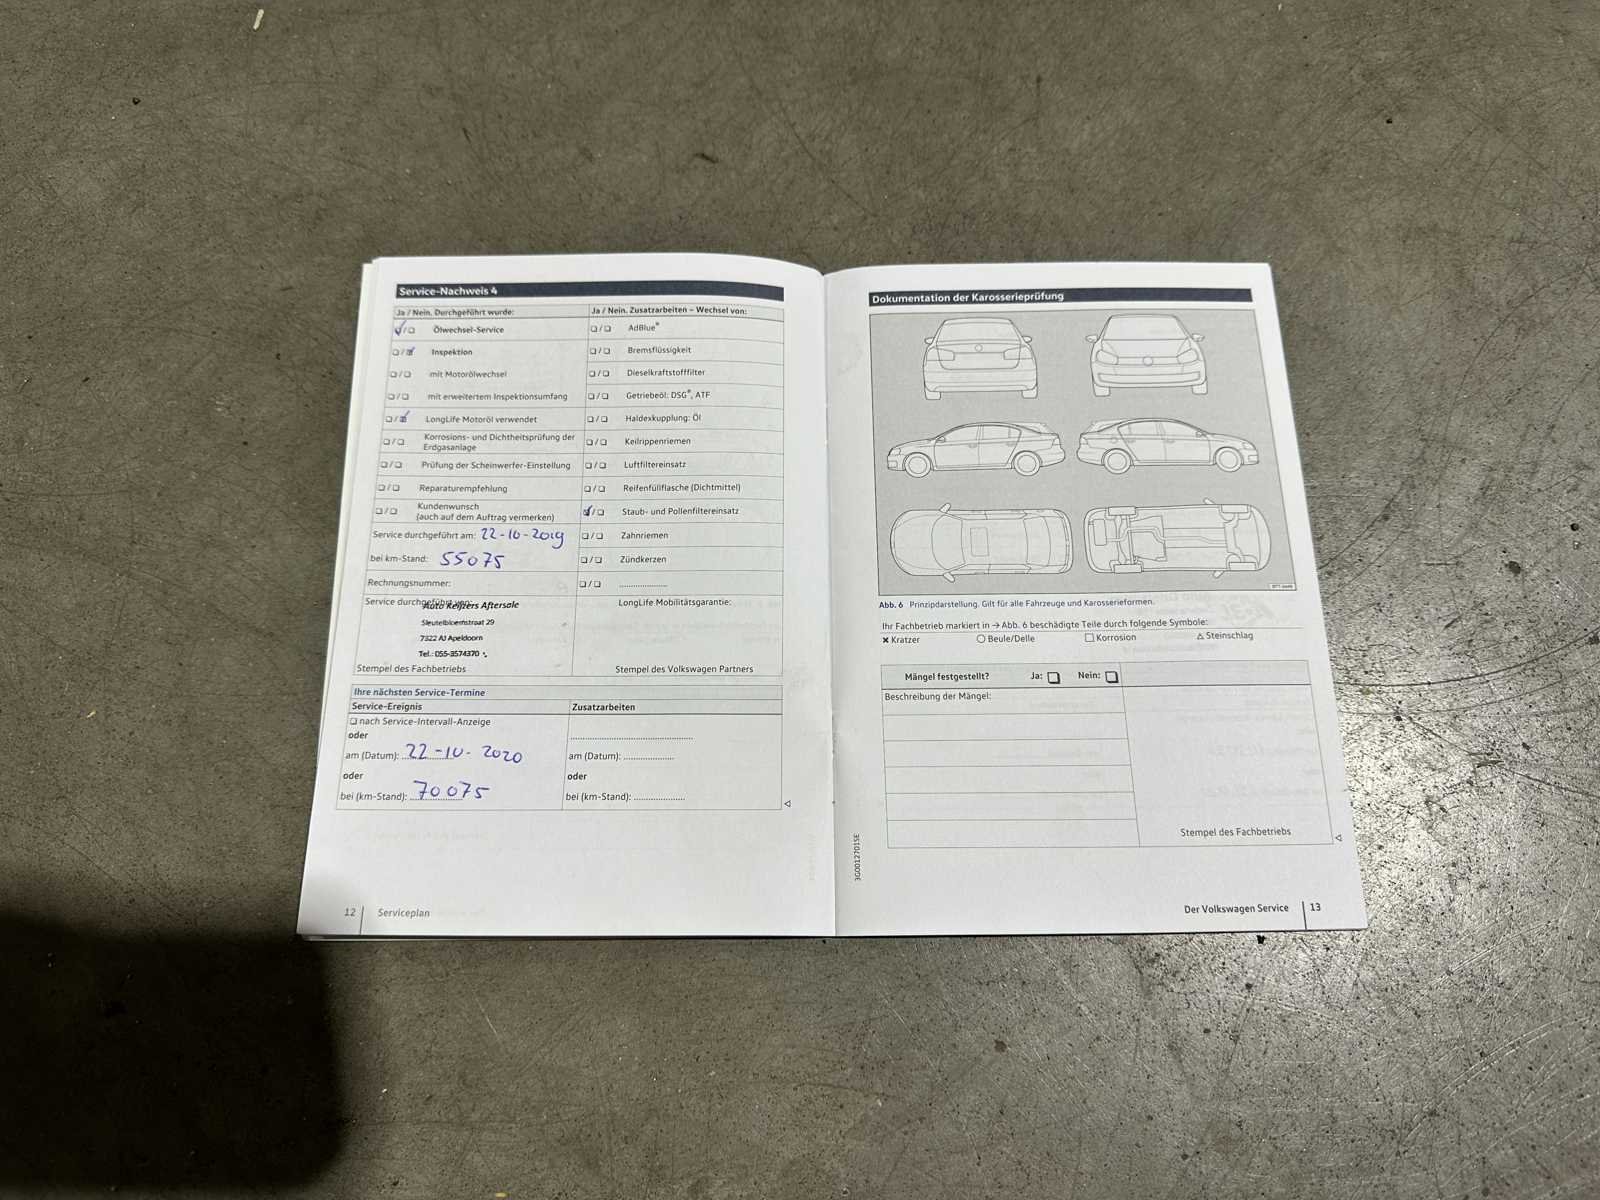 Service-Nachweis 4
Ja / Nein. Durchgeführt wurde:
Ölwechsel-Service
Inspektion
mit Motorölwechsel
mit erweitertem Inspektionsumfang
LongLife Motoröl verwendet
Korrosions- und Dichtheitsprüfung der
Erdgasanlage
Prüfung der Scheinwerfer-Einstellung
Reparaturempfehlung
Kundenwunsch
(auch auf dem Auftrag vermerken)
Service durchgeführt am: 22-10-2019
bei km-Stand: 55075
Rechnungsnummer:
Service durchgeführt von:
Auto Keijzers Aftersale
Sleutelbloemstraat 29
7322 AJ Apeldoorn
Tel.: 055-3574370
Stempel des Fachbetriebs
Ja / Nein. Zusatzarbeiten – Wechsel von:
AdBlue®
Bremsflüssigkeit
Dieselkraftstofffilter
Getriebeöl: DSG®, ATF
Haldexkupplung: Öl
Keilrippenriemen
Luftfiltereinsatz
Reifenfüllflasche (Dichtmittel)
Staub- und Pollenfiltereinsatz
Zahnriemen
Zündkerzen
LongLife Mobilitätsgarantie:
Stempel des Volkswagen Partners
Ihre nächsten Service-Termine
Service-Ereignis
nach Service-Intervall-Anzeige
oder
am (Datum): 22-10-2020
oder
bei (km-Stand): 70075
Zusatzarbeiten
am (Datum):
oder
bei (km-Stand):
12 Serviceplan
Dokumentation der Karosserieprüfung
Abb. 6 Prinzipdarstellung. Gilt für alle Fahrzeuge und Karosserieformen.
Ihr Fachbetrieb markiert in → Abb. 6 beschädigte Teile durch folgende Symbole:
Kratzer
Beule/Delle
Korrosion
Steinschlag
Mängel festgestellt? Ja: Nein:
Beschreibung der Mängel:
Stempel des Fachbetriebs
3G0012701SE
Der Volkswagen Service 13